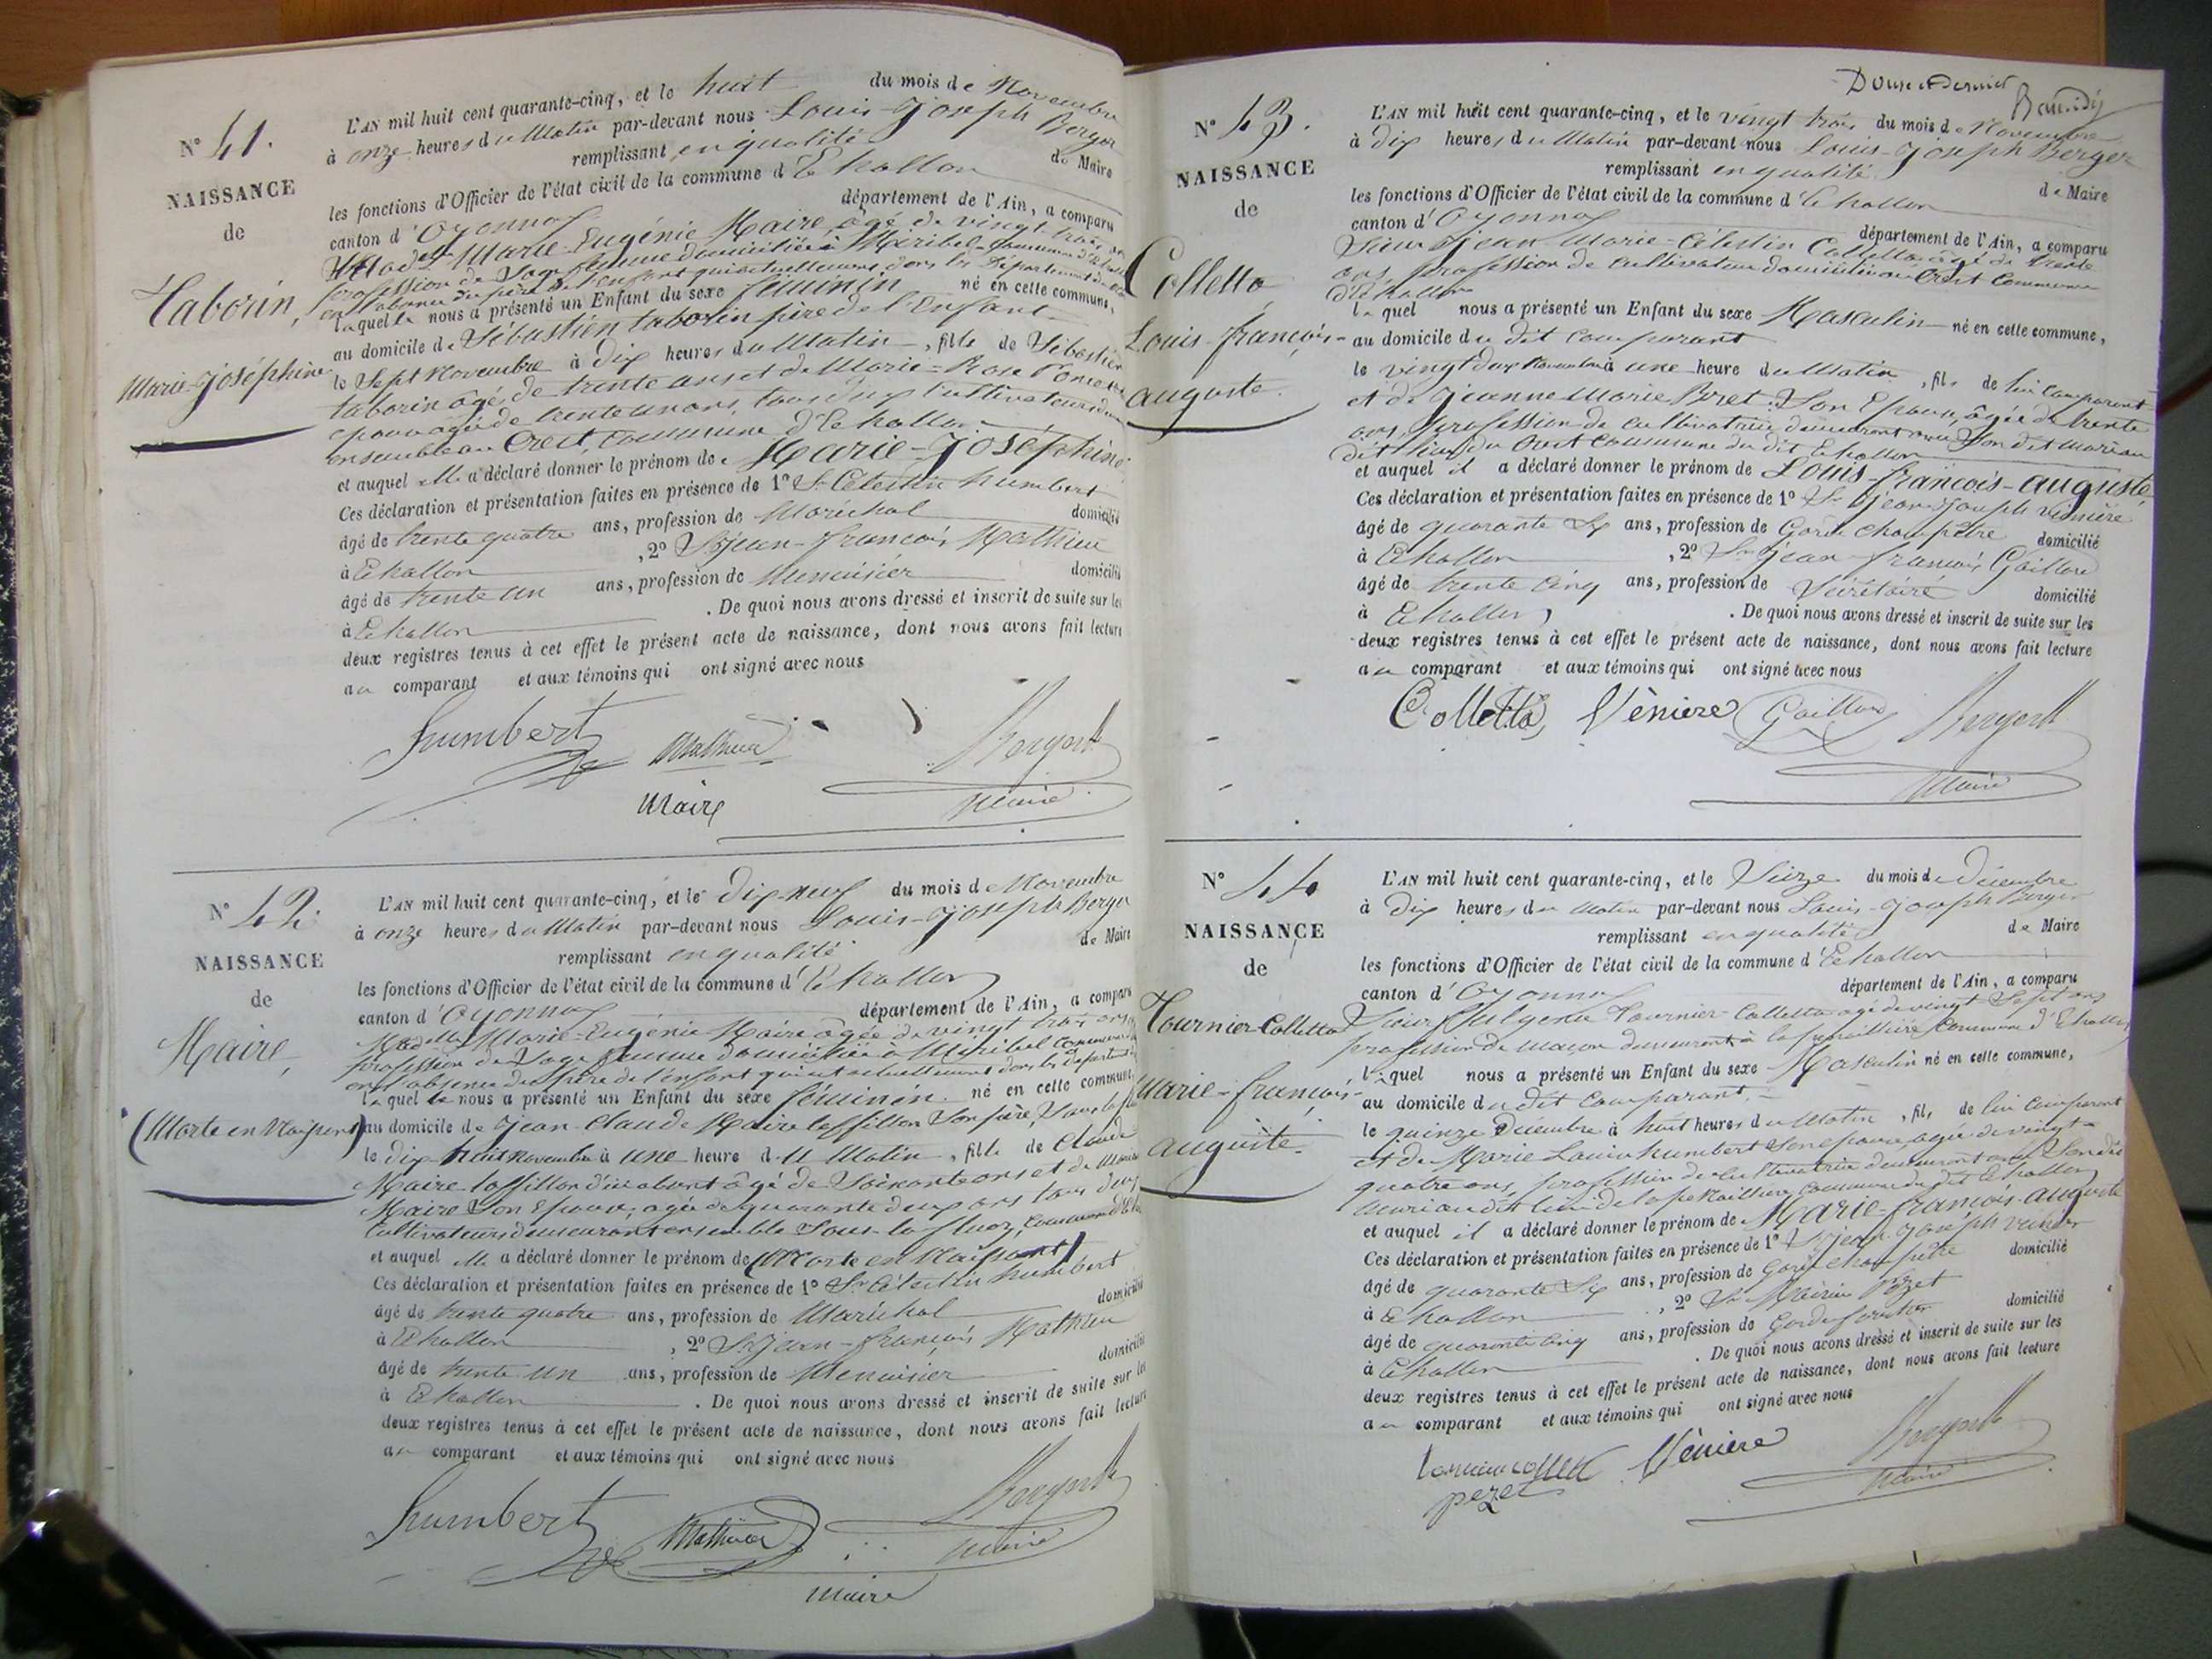 N° 41.
NAISSANCE
de
Taborin,
Marie-Joséphine
L'AN mil huit cent quarante-cinq, et le huit du mois de Novembre
à onze heures du Matin par-devant nous Louis-Joseph Berger
remplissant en qualité de Maire
les fonctions d'Officier de l'état civil de la commune d'Echallon
canton d'Oyonnax département de l'Ain, a comparu
Marie-Eugénie Maire, âgé de vingt trois ans
profession de Sage femme domiciliée à Miribel commune d'Echallon
en l'absence du père de l'enfant qui est actuellement dans le Département
laquelle nous a présenté un Enfant du sexe féminin né en cette commune,
au domicile de Sébastien taborin père de l'Enfant
le Sept Novembre à Dix heures du Matin, fille de Sébastien
taborin âgé de trente ans et de Marie-Rose Poncet
épouse agée de trente un ans, tous deux Cultivateurs
ensemble au Crest, Commune d'Echallon
et auquel elle a déclaré donner le prénom de Marie-Joséphine
Ces déclaration et présentation faites en présence de 1° Sr Célestin humbert
âgé de trente quatre ans, profession de Maréchal domicilié
à Echallon, 2° Sr jean-françois Mathieu
âgé de trente un ans, profession de Menuisier domicilié
à Echallon. De quoi nous avons dressé et inscrit de suite sur les
deux registres tenus à cet effet le présent acte de naissance, dont nous avons fait lecture
au comparant et aux témoins qui ont signé avec nous
humbert Mathieu Berger
Maire Maire
N° 42.
NAISSANCE
de
Maire,
(Morte en Naissant)
L'AN mil huit cent quarante-cinq, et le dix-neuf du mois de Novembre
à onze heures du Matin par-devant nous Louis-Joseph Berger
remplissant en qualité de Maire
les fonctions d'Officier de l'état civil de la commune d'Echallon
canton d'Oyonnax département de l'Ain, a comparu
Marie-Eugénie Maire âgée de vingt trois ans
profession de Sage femme domiciliée à Miribel commune
en l'absence du père de l'enfant qui est actuellement dans le département
laquelle nous a présenté un Enfant du sexe féminin né en cette commune,
au domicile de Jean-Claude Maire Son père,
le dix huit novembre à une heure du Matin, fille de Claude
Maire âgé de Soixante ans et de
Maire Son Epouse, agée de quarante deux ans tous deux
Cultivateurs demeurant ensemble Sous la
et auquel elle a déclaré donner le prénom de (Morte en Naissant)
Ces déclaration et présentation faites en présence de 1° Sr Célestin humbert
âgé de trente quatre ans, profession de Maréchal domicilié
à Echallon, 2° Sr jean-françois Mathieu
âgé de trente un ans, profession de Menuisier domicilié
à Echallon. De quoi nous avons dressé et inscrit de suite sur les
deux registres tenus à cet effet le présent acte de naissance, dont nous avons fait lecture
au comparant et aux témoins qui ont signé avec nous
humbert Mathieu Berger
Maire
Maire
N° 43.
NAISSANCE
de
Colletta
Louis-françois-
auguste.
L'AN mil huit cent quarante-cinq, et le vingt trois du mois de Novembre
à dix heures du Matin par-devant nous Louis-Joseph Berger
remplissant en qualité de Maire
les fonctions d'Officier de l'état civil de la commune d'Echallon
canton d'Oyonnax département de l'Ain, a comparu
Sieur jean Marie-Célestin Colletta agé de trente
ans, profession de cultivateur domicilié au Crest Commune
d'Echallon
lequel nous a présenté un Enfant du sexe Masculin né en cette commune,
au domicile du dit comparant
le vingt deux Novembre à une heure du Matin, fils de lui comparant
et de Jeanne Marie Son Epouse, âgée de trente
ans, profession de cultivatrice demeurant avec Son dit mari au
dit lieu du Crest Commune du dit Echallon
et auquel il a déclaré donner le prénom de Louis-françois-auguste
Ces déclaration et présentation faites en présence de 1° Sr Jean Joseph Vénière
âgé de quarante Six ans, profession de Garde Champêtre domicilié
à Echallon, 2° Sr jean françois Gaillard
âgé de trente cinq ans, profession de Sécrétaire domicilié
à Echallon. De quoi nous avons dressé et inscrit de suite sur les
deux registres tenus à cet effet le présent acte de naissance, dont nous avons fait lecture
au comparant et aux témoins qui ont signé avec nous
Colletta Vènière Gaillard Berger
Maire
N° 44
NAISSANCE
de
Tournier-Colletta
Marie-françois-
auguste.
L'AN mil huit cent quarante-cinq, et le Seize du mois de Décembre
à Dix heures du Matin par-devant nous Louis-Joseph Berger
remplissant en qualité de Maire
les fonctions d'Officier de l'état civil de la commune d'Echallon
canton d'Oyonnax département de l'Ain, a comparu
Sieur Fulgence Tournier-Colletta agé de vingt Sept ans
profession de maçon demeurant à commune d'Echallon
lequel nous a présenté un Enfant du sexe Masculin né en cette commune,
au domicile du dit comparant.
le quinze Décembre à huit heures du Matin, fils de lui comparant
et de Marie Louise humbert Son épouse, agée de vingt
quatre ans, profession de cultivatrice demeurant avec Son dit
mari au dit lieu de commune du dit Echallon
et auquel il a déclaré donner le prénom de Marie-françois-auguste
Ces déclaration et présentation faites en présence de 1° Sr jean joseph
âgé de quarante Six ans, profession de Garde champêtre domicilié
à Echallon, 2° Sr Pezet
âgé de quarante cinq ans, profession de Garde forestier domicilié
à Echallon. De quoi nous avons dressé et inscrit de suite sur les
deux registres tenus à cet effet le présent acte de naissance, dont nous avons fait lecture
au comparant et aux témoins qui ont signé avec nous
Vènière Berger
pezet Maire